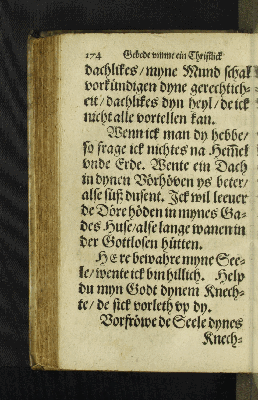 174 Gebede vmme ein Christlick
dachlikes/ myne Mund schal
vorkündigen dyne gerechtich-
eit/ dachlikes dyn heyl/ de ick
nicht alle vortellen kan.
Wenn ick man dy hebbe/
so frage ick nichtes na Hem̃el
vnde Erde. Wente ein Dach
in dynen Vörhöven ys beter/
alse süß dusent. Jck wil leever
de Döre höden in mynes Ga-
des Huse/ alse lange wanen in
der Gottlosen hütten.
HEre bewahre myne See-
le/ wente ick bin hillich. Help
du myn Godt dynem Knech-
te/ de sick vorleth vp dy.
Vorfröwe de Seele dynes
Knech-